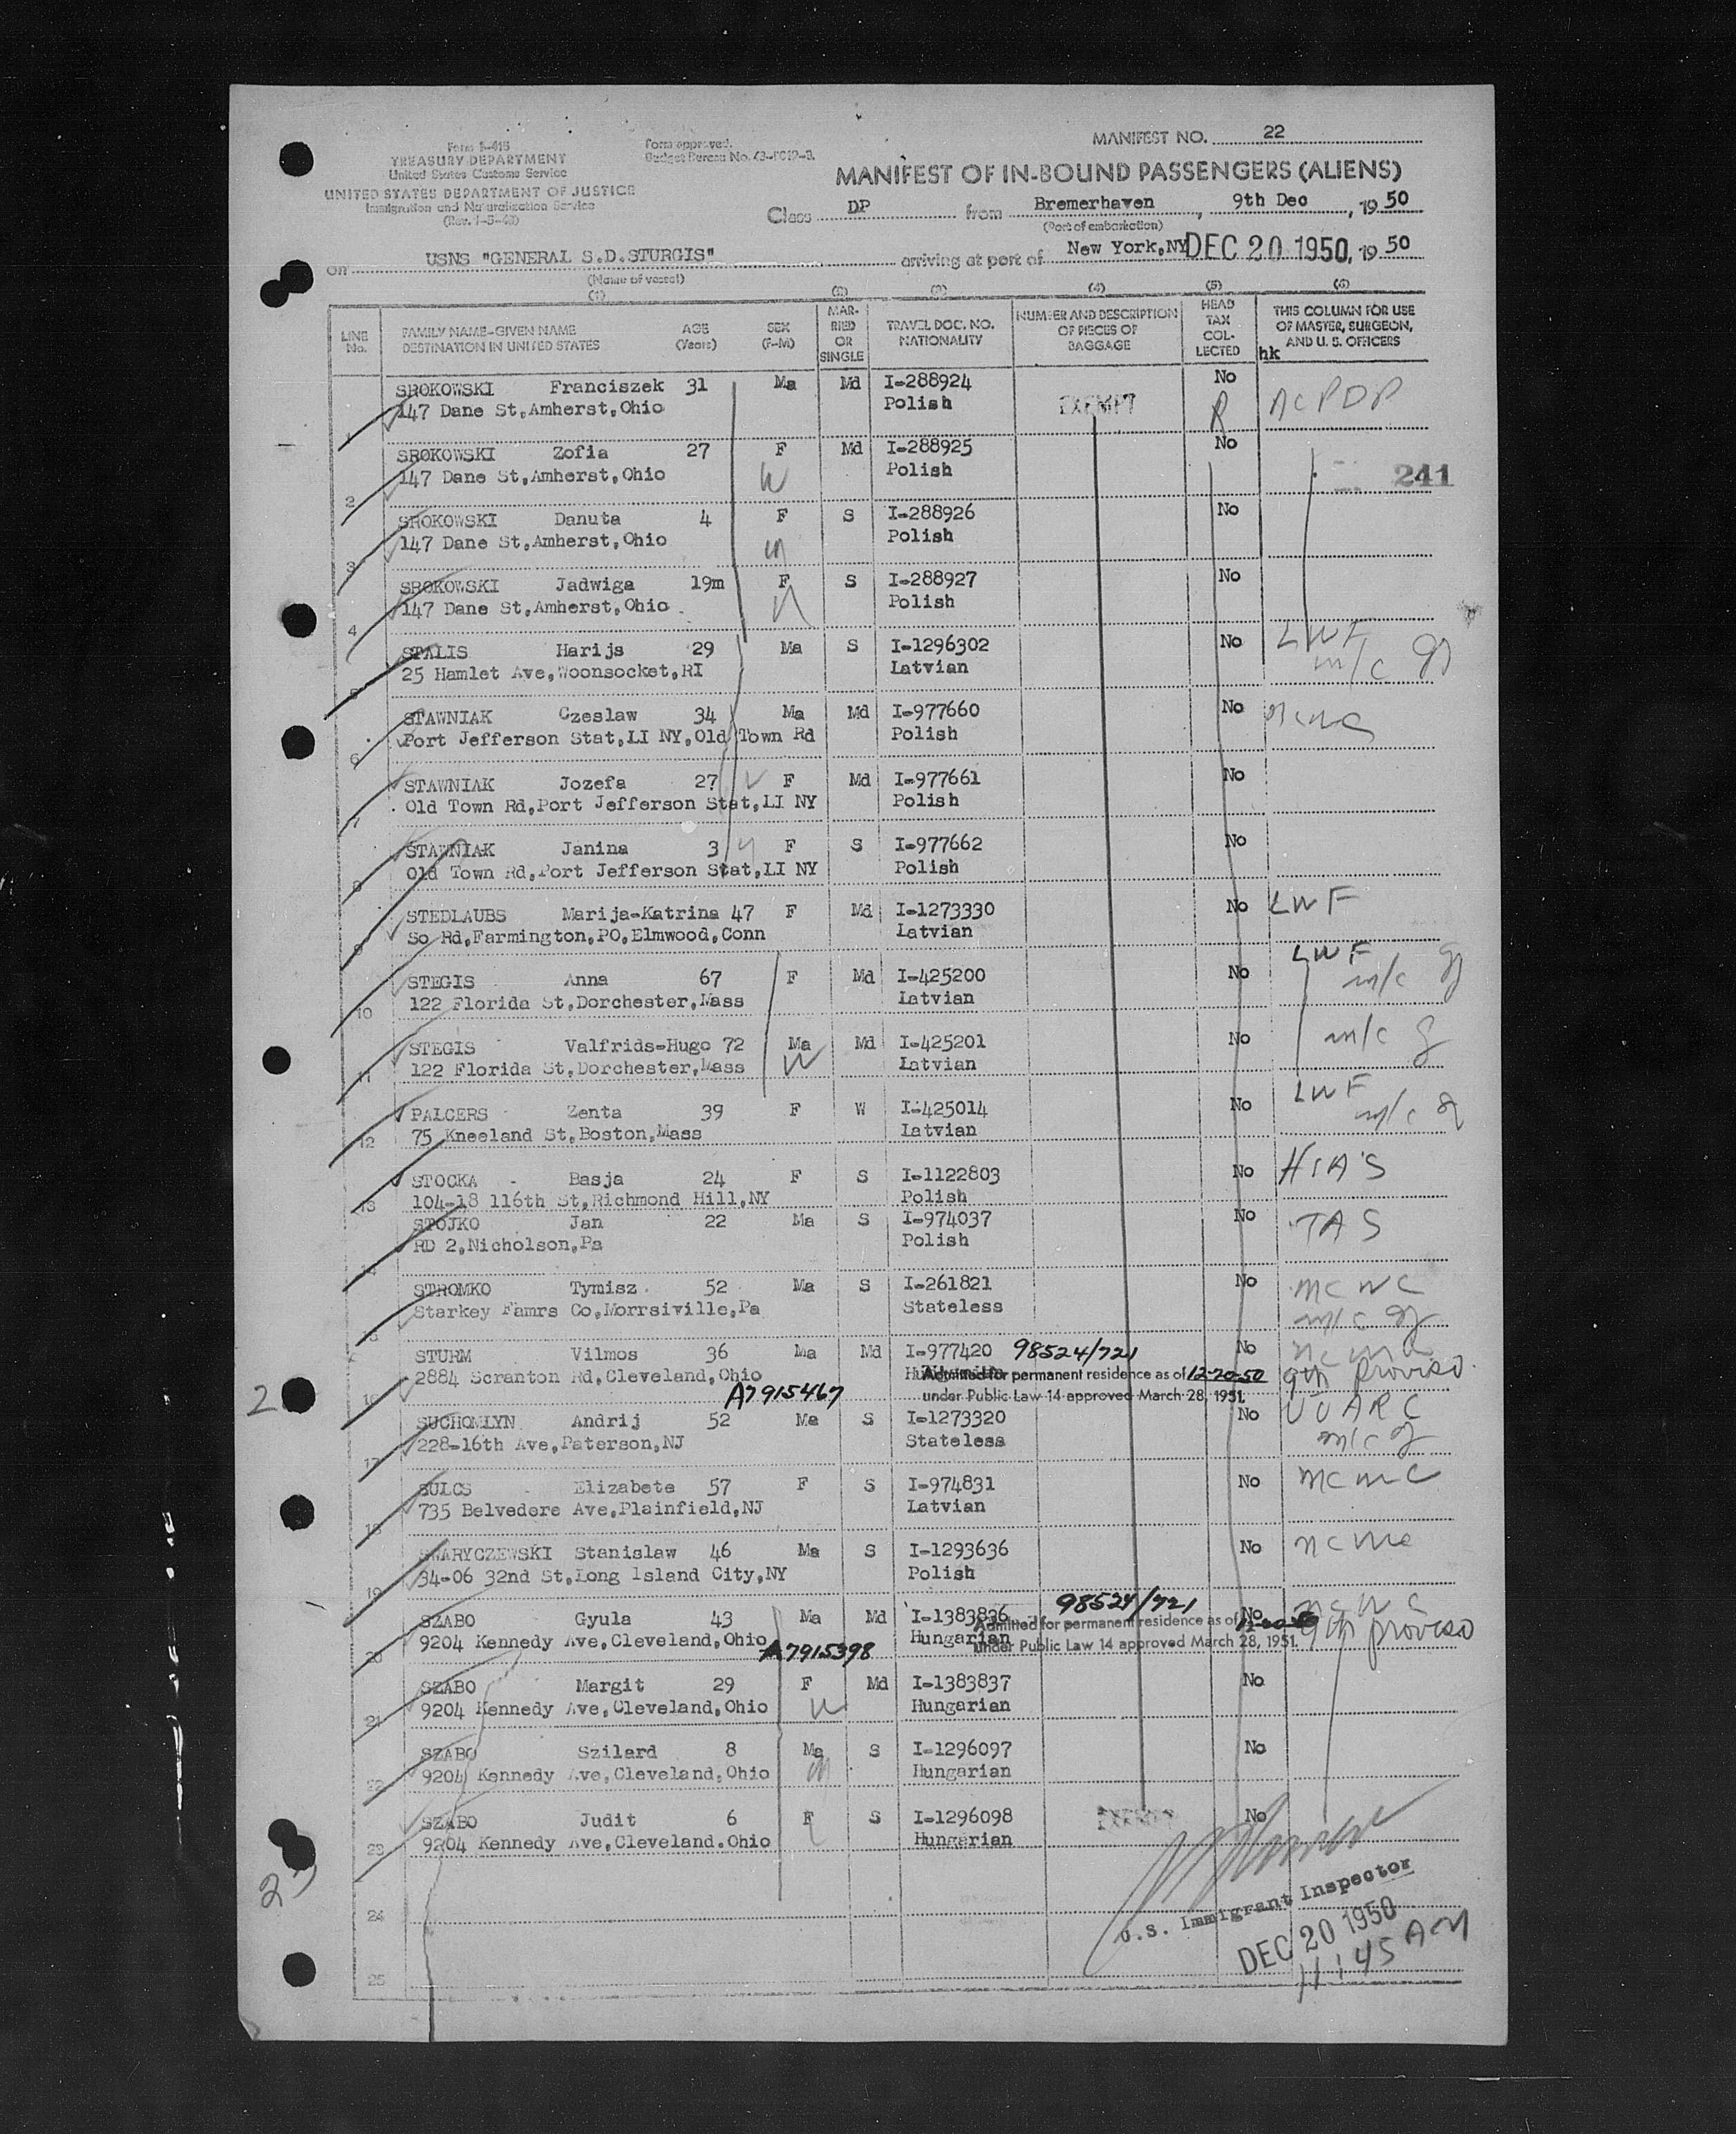 MANIFEST NO. 22
Form I-415
TREASURY DEPARTMENT
United States Customs Service
UNITED STATES DEPARTMENT OF JUSTICE
Immigration and Naturalization Service
Form approved.
Budget Bureau No.
MANIFEST OF IN-BOUND PASSENGERS (ALIENS)
Class DP from Bremerhaven, 9th Dec, 19 50
(Port of embarkation)
on USNS "GENERAL S.D.STURGIS" arriving at port of New York,NY DEC 20 1950, 19 50
(Name of vessel)
(1) (2) (3) (4) (5) (6)
LINE No. FAMILY NAME—GIVEN NAME DESTINATION IN UNITED STATES AGE (Years) SEX (F-M) MARRIED OR SINGLE TRAVEL DOC. NO. NATIONALITY NUMBER AND DESCRIPTION OF PIECES OF BAGGAGE HEAD TAX COLLECTED THIS COLUMN FOR USE OF MASTER, SURGEON, AND U. S. OFFICERS
hk
1 SROKOWSKI Franciszek 31 Ma Md I-288924 No
147 Dane St,Amherst,Ohio Polish EXEMPT R ACPDP
2 SROKOWSKI Zofia 27 F Md I-288925 No
147 Dane St,Amherst,Ohio W Polish 241
3 SROKOWSKI Danuta 4 F S I-288926 No
147 Dane St,Amherst,Ohio Polish
4 SROKOWSKI Jadwiga 19m F S I-288927 No
147 Dane St,Amherst,Ohio Polish
5 STALIS Harijs 29 Ma S I-1296302 No LWF
25 Hamlet Ave,Woonsocket,RI Latvian m/c
6 STAWNIAK Czeslaw 34 Ma Md I-977660 No ncwc
Port Jefferson Stat,LI NY,Old Town Rd Polish
7 STAWNIAK Jozefa 27 F Md I-977661 No
Old Town Rd,Port Jefferson Stat,LI NY Polish
8 STAWNIAK Janina 3 F S I-977662 No
Old Town Rd,Port Jefferson Stat,LI NY Polish
9 STEDLAUBS Marija-Katrina 47 F Md I-1273330 No LWF
So Rd,Farmington,PO,Elmwood,Conn Latvian
10 STEGIS Anna 67 F Md I-425200 No LWF
122 Florida St,Dorchester,Mass Latvian m/c
11 STEGIS Valfrids-Hugo 72 Ma Md I-425201 No m/c
122 Florida St,Dorchester,Mass W Latvian
12 PALCERS Zenta 39 F W I-425014 No LWF
75 Kneeland St,Boston,Mass Latvian m/c
13 STOCKA Basja 24 F S I-1122803 No HIA'S
104-18 116th St,Richmond Hill,NY Polish
14 STOJKO Jan 22 Ma S I-974037 No TAS
RD 2,Nicholson,Pa Polish
15 STROMKO Tymisz 52 Ma S I-261821 No ncwc
Starkey Famrs Co,Morrsiville,Pa Stateless m/c
16 STURM Vilmos 36 Ma Md I-977420 98524/721 No ncwc
2884 Scranton Rd,Cleveland,Ohio Admitted for permanent residence as of 12-20-50 9th proviso
A7915467 under Public Law 14 approved March 28, 1951.
17 SUCHOMLYN Andrij 52 Ma S I-1273320 No UUARC
228-16th Ave,Paterson,NJ Stateless m/c
18 SULCS Elizabete 57 F S I-974831 No ncwc
735 Belvedere Ave,Plainfield,NJ Latvian
19 SWARYCZEWSKI Stanislaw 46 Ma S I-1293636 No ncwc
34-06 32nd St,Long Island City,NY Polish
20 SZABO Gyula 43 Ma Md I-1383836 98524/721 No ncwc
9204 Kennedy Ave,Cleveland,Ohio Hungarian Admitted for permanent residence as of 12-20-50 9th proviso
A7915398 under Public Law 14 approved March 28, 1951.
21 SZABO Margit 29 F Md I-1383837 No
9204 Kennedy Ave,Cleveland,Ohio W Hungarian
22 SZABO Szilard 8 Ma S I-1296097 No
9204 Kennedy Ave,Cleveland,Ohio Hungarian
23 SZABO Judit 6 F S I-1296098 EXEMPT No
9204 Kennedy Ave,Cleveland.Ohio Hungarian
24
U.S. Immigrant Inspector
DEC 20 1950
11:45 AM
25
2
23